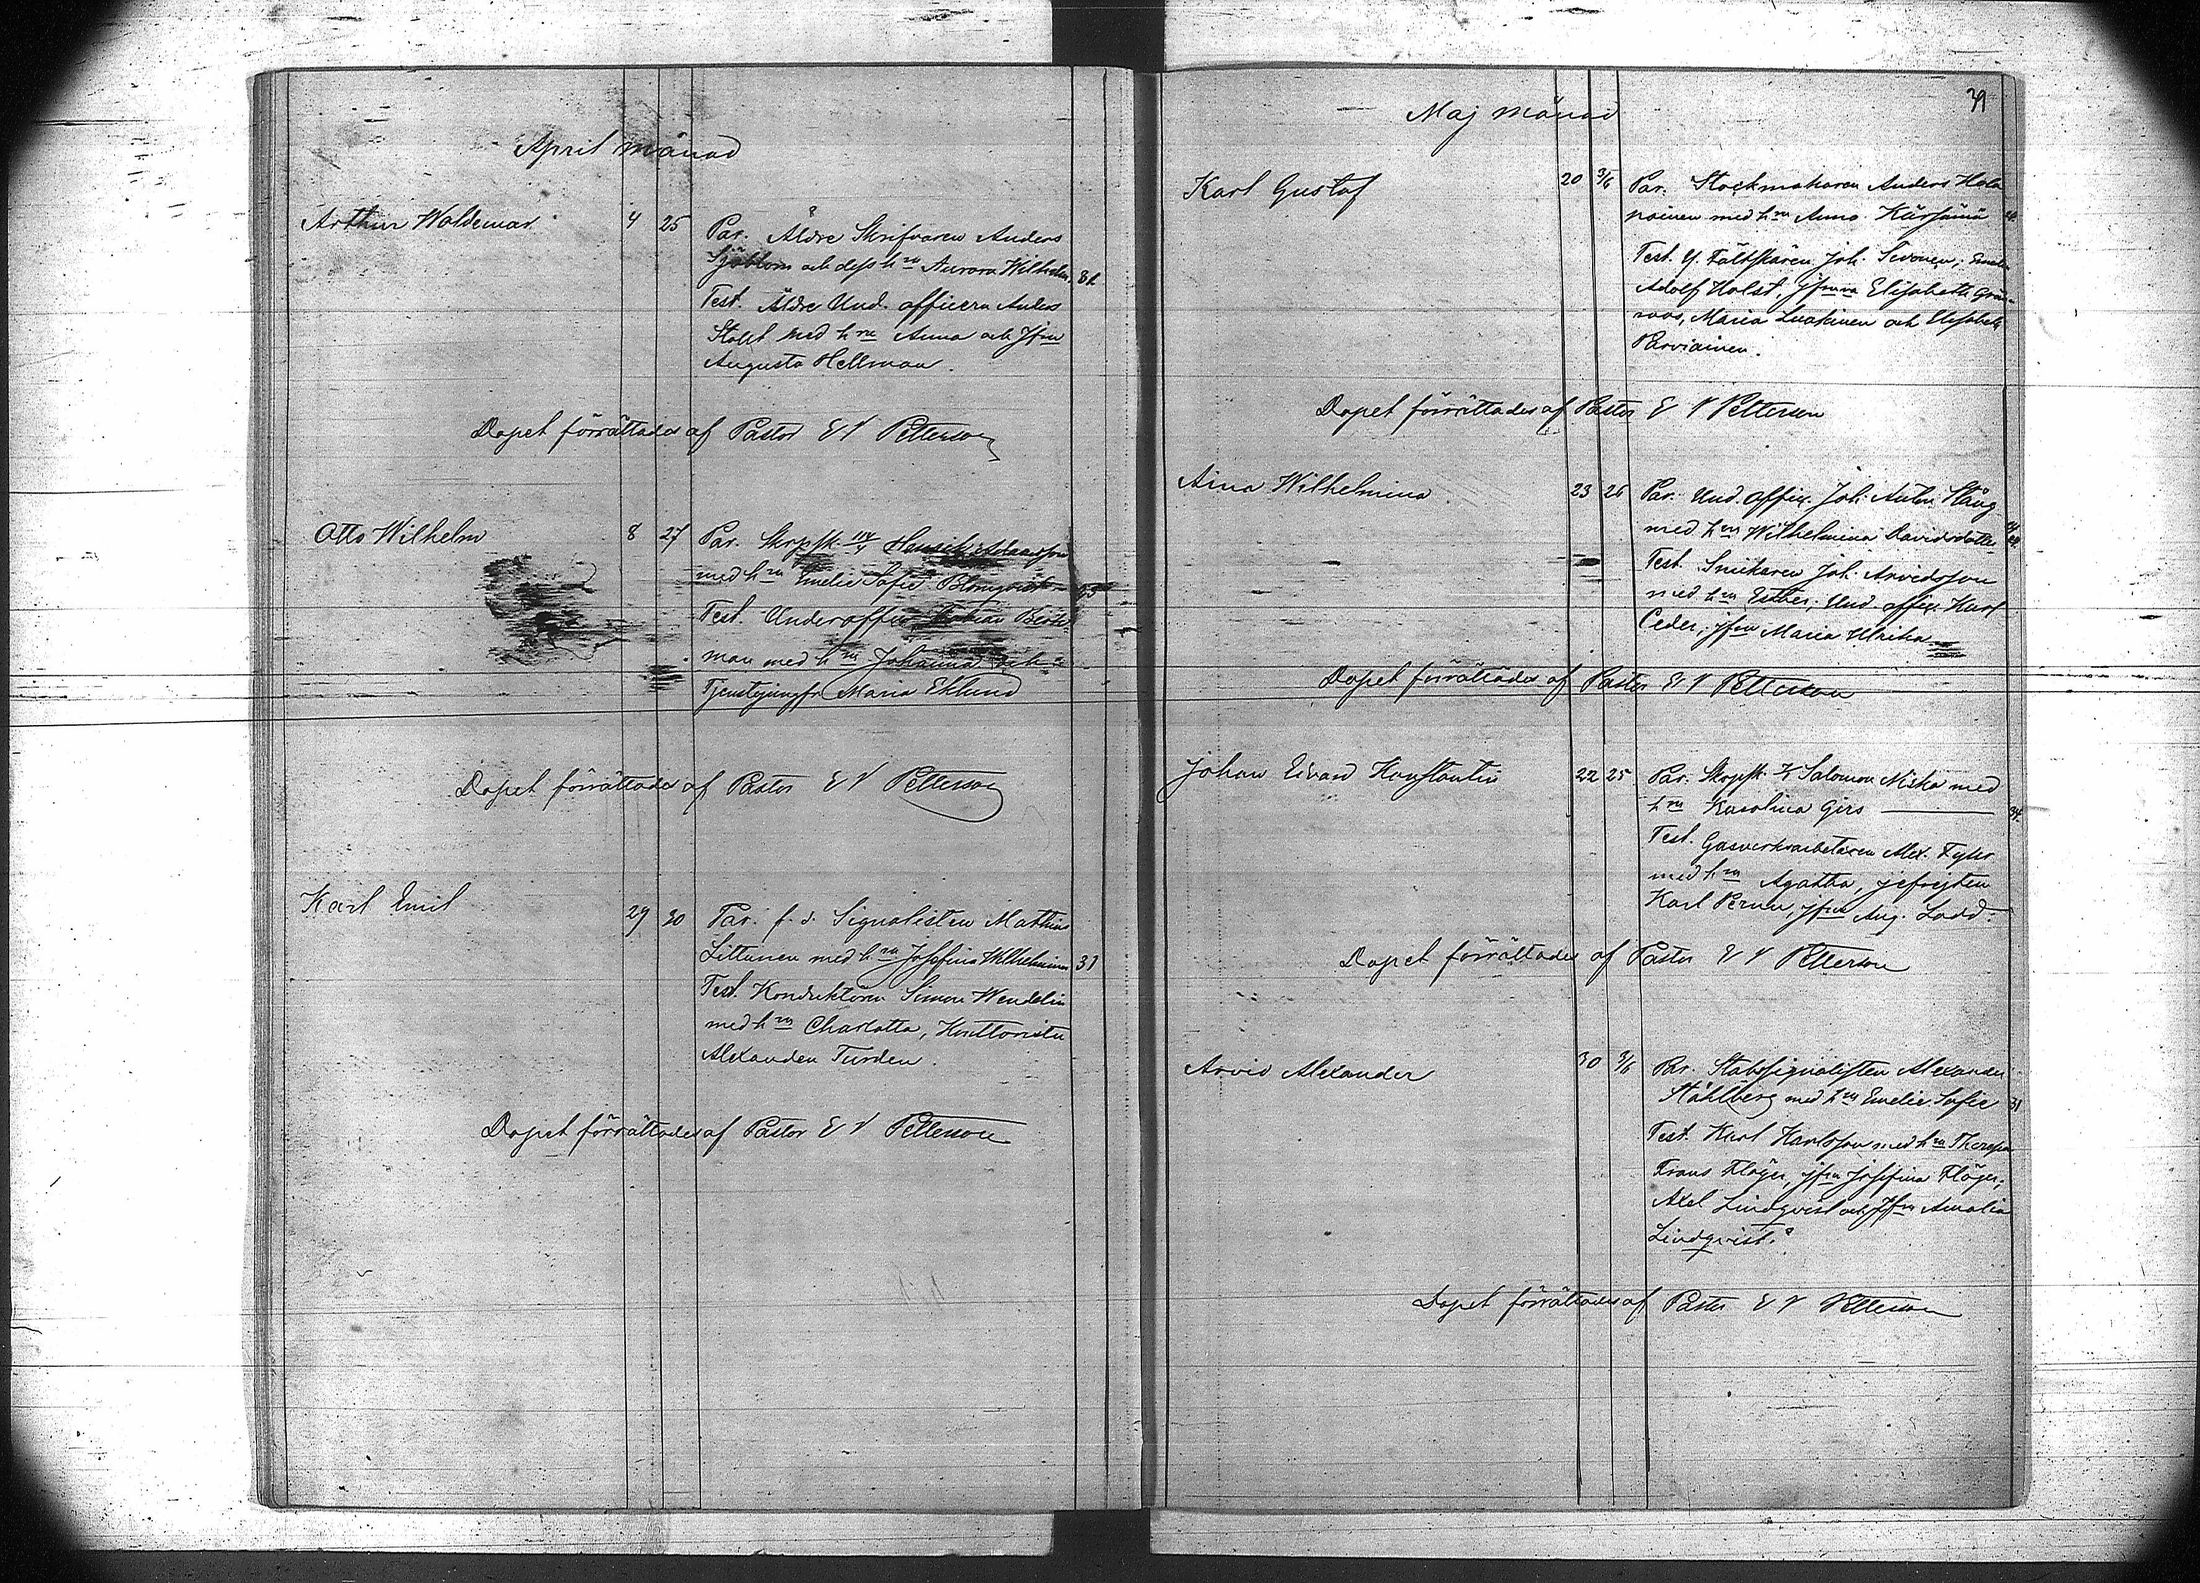 April månad
Arthur Waldemar. 4 25 Par. Äldre Skrifvaren Anders
Sjöblom och dess h:ru Aurora Wilhelm. 32
Test. Äldre Und. officern Anders
Stolt med h:ru Anna och Jfru
Augusta Hellman.
Dopet förrättades af Pastor E V Petterson
Otto Wilhelm 8 27 Par. Skrpsk. Henrik Adamsson
med h:ru Emelie Sofie Blomqvist
Test. Underofficer Tobias
man med h:ru Johanna och
Tjenstejungfr Maria Eklund
Dopet förrättades af Pastor E V Petterson
Karl Emil 29 30 Par. f. d. Signalisten Mathias
Littunen med h:ru Josefina Wilhelmina 31
Test. Konduktörn Simon Wendelin
med h:ru Charlotta, Konttoristen
Alexander Turden.
Dopet förrättades af Pastor E V Petterson
39
Maj månad
Karl Gustaf 20 3/6 Par. Stockmakaren Anders Holo
painen med h:ru Anna
Test. Y. Fältskären Joh. Sivonen,
Adolf Holst, jfruna Elisabeth Grön-
roos, Maria Luakinen och Elisabeth
Parviainen.
Dopet förrättades af Pastor E V Petterson
Aina Wilhelmina 23 26 Par. Und. offic. Joh. Anton Stång
med h:ru Wilhelmina Davidsdotter
Test. Snickaren Joh. Arvidsson
med h:ru Esther, Und. offic. Karl
Ceder, jfru Maria Ulrika
Dopet förrättades af Pastor E V Petterson
Johan Edvard Konstantin 22 25 Par. Skrpsk. Salomon Niska med
h:ru Karolina Girs 34.
Test. Gasverksarbetaren Alex. Fyhr
med h:ru Agatha, jefrejten
Karl Perner, jfru Aug. Ladd.
Dopet förrättades af Pastor E V Petterson
Arvid Alexander 30 3/6 Par. Stabssignalisten Alexander
Ståhlberg med h:ru Emelie Sofie 31
Test. Karl Karlsson med h:ru Theresa
Frans Flöjer, jfru Josefina Flöjer,
Axel Lindqvist och Jfru Amalia
Lindqvist.
Dopet förrättades af Pastor E V Petterson